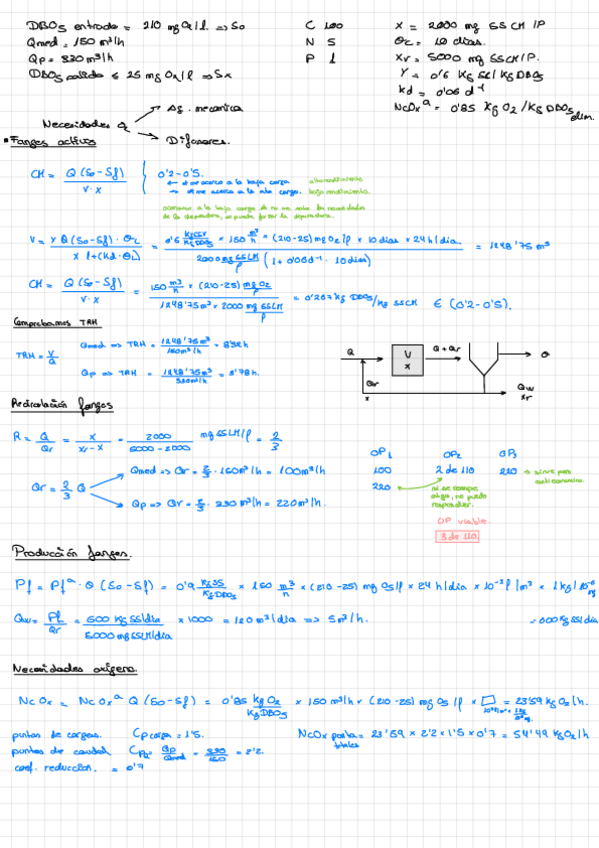 DBO5 entrada = 210 mg O2/l. => So
Qmed = 150 m³/h
Qp = 330 m³/h
DBO5 salida ≤ 25 mg O2/l => Sx
C 100
N 5
P 1
X = 2000 mg SSLM/l
θc = 10 días.
Xr = 5000 mg SSLM/l.
Y = 0'6 Kg SS/KgDBO5
kd = 0'06 d⁻¹
NcOxᵃ = 0'85 kg O2/Kg DBO5 elim.
Necesidades O2
Ag. mecanica
Difusores.
• Fangos activos
CM = Q (So-Sf) / V·X
0'2-0'5.
← me acerco a la baja carga alto rendimiento
→ me acerco a la alta carga. bajo rendimiento.
V = Y Q (So-Sf)·θc / X (1+(Kd·θc)) = 0'6 KgSS/KgDBO5 × 150 m³/h × (210-25) mg O2/l × 10 días × 24 h/día / 2000 mg SSLM/l (1+0'06 d⁻¹·10 días) = 1248'75 m³
CM = Q (So-Sf) / V·X = 150 m³/h × (210-25) mg O2/l / 1248'75 m³ × 2000 mg SSLM/l = 0'267 kg DBO5/kg SSLM ∈ (0'2-0'5).
Comprobamos TRH
TRH = V/Q
Qmed => TRH = 1248'75 m³ / 150 m³/h = 8'32 h
Qp => TRH = 1248'75 m³ / 330 m³/h = 3'78 h.
Q
V
X
Q+Qr
Q
Qr
X
Qw
Xr
Recirculación fangos
R = Q/Qr = X / Xr-X = 2000 / 5000-2000 mg SSLM/l = 2/3
Qr = 2/3 Q
Qmed => Qr = 2/3 · 150 m³/h = 100 m³/h
Qp => Qr = 2/3 · 330 m³/h = 220 m³/h.
OP1
OP2
OP3
100
2 de 110
220
220
si se rompe algo, no puedo responder.
OP viable.
3 de 110
Producción fangos.
Pf = Pfᵃ · Q (So-Sf) = 0'9 KgSS/KgDBO5 × 150 m³/h × (210-25) mg O2/l × 24 h/día × 10⁻³ l/m³ × 1 kg/10⁻⁶ mg
= 600 Kg SS/día
Qw = Pf/Qr = 600 Kg SS/día / 5000 mg SSLM/día × 1000 = 120 m³/día => 5 m³/h.
Necesidades oxígeno.
NcOx = NcOxᵃ Q (So-Sf) = 0'85 kg O2/KgDBO5 × 150 m³/h × (210-25) mg O2/l × □ = 23'59 Kg O2/h.
puntas de cargas. Cp carga = 1'5.
puntas de caudal CpQ = Qp/Qmed = 330/150 = 2'2.
coef. reducción. = 0'7
NcOx punta totales = 23'59 × 2'2 × 1'5 × 0'7 = 54'49 Kg O2/h